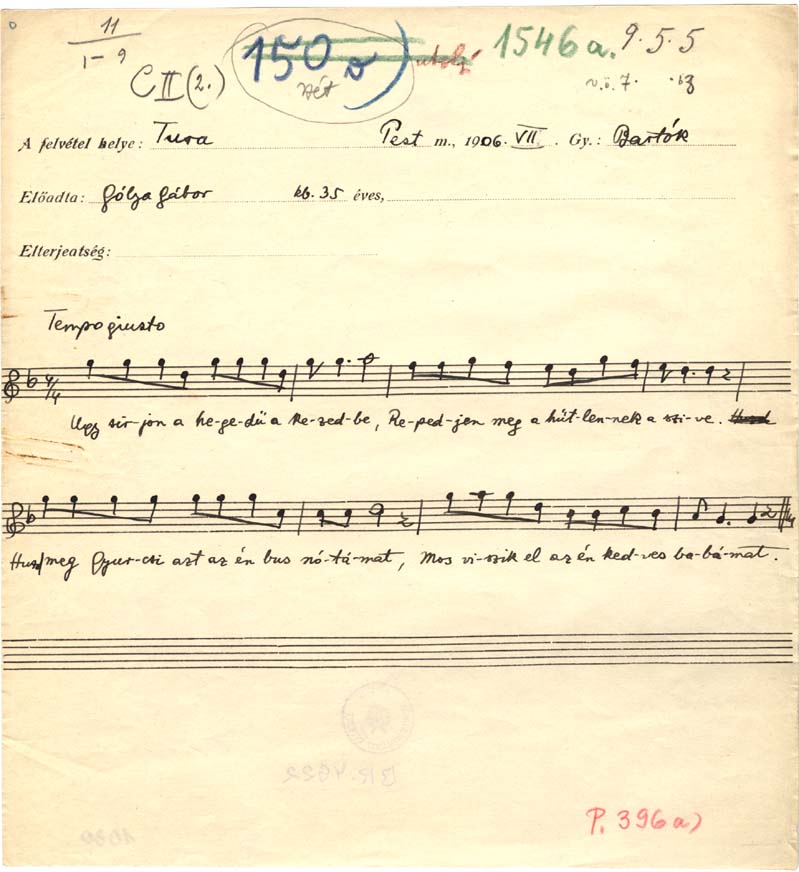 11
I–9
C II (2.)
150 1546 a. 9. 5. 5
v.ö. 7.
A felvétel helye: Tura Pest m., 1906. VII. Gy.: Bartók
Előadta: Gólya Gábor kb. 35 éves,
Elterjeatség:
Tempo giusto
4/4
Ugy sir-jon a he-ge-dü a ke-zed-be, Re-ped-jen meg a hüt-len-nek a szi-ve.
Huzd meg Gyur-csi azt az én bus nó-tá-mat, Mos vi-szik el az én ked-ves ba-bá-mat.
BR 4622
P. 396 a)